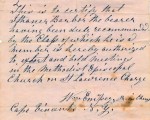 This is to certify that
Barber the bearer
having been duly recommend
by the Class of which he is a
Member is hereby authorized
to exhort and hold meetings
in the Methodist Episcopal
Church on St Lawrence Charge
Cape Vincent N.Y.